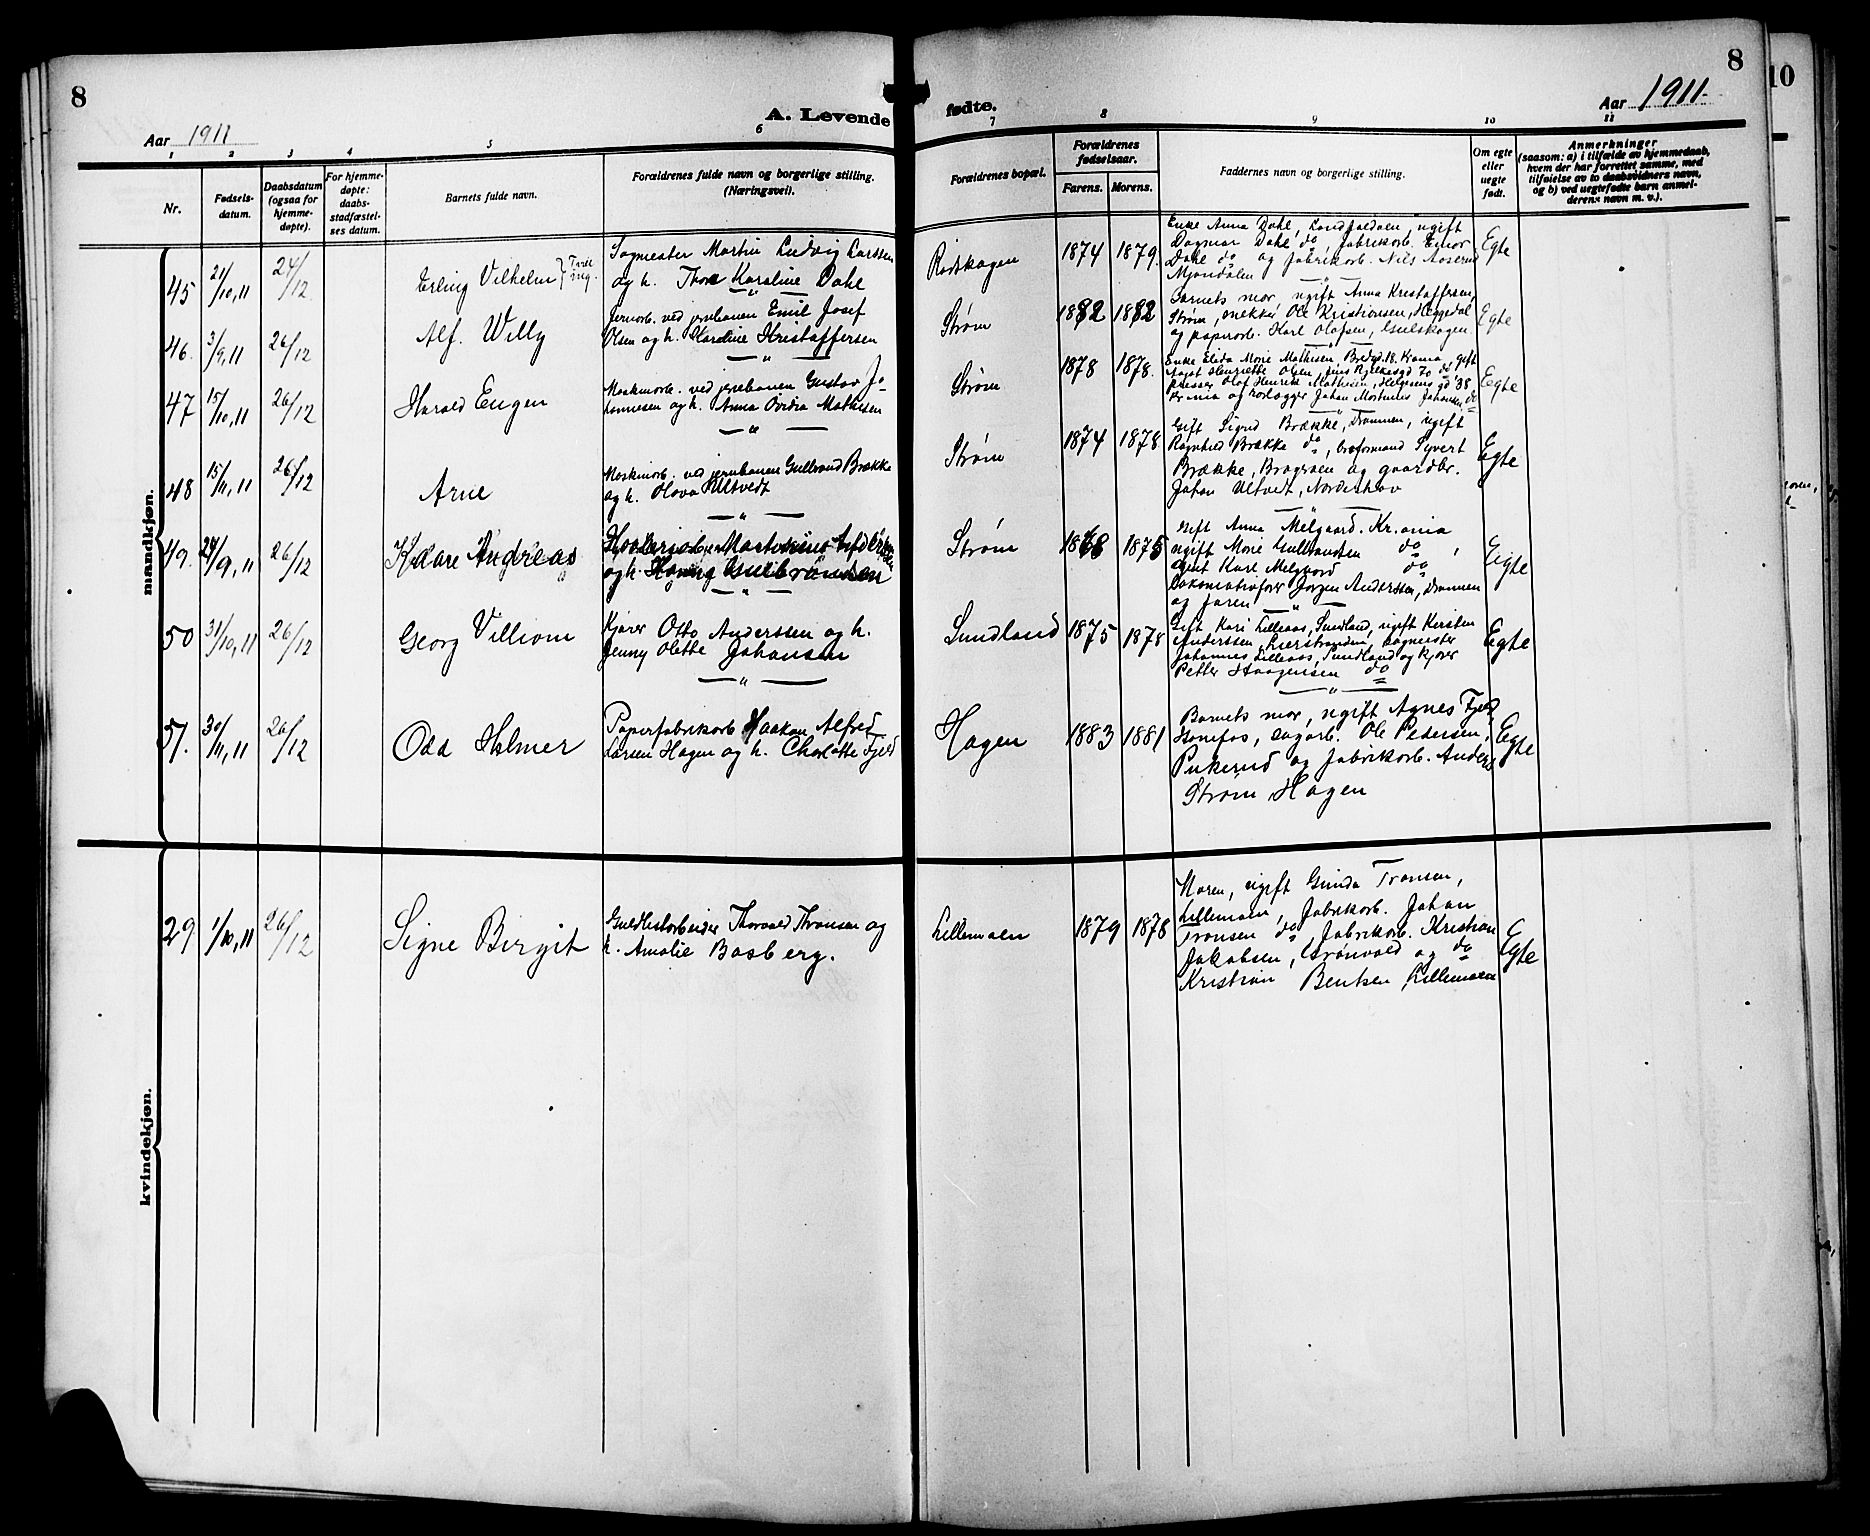 8
A. Levende
Aar 1911
1 2 3 4 5 6
Nr.
Fødsels-
datum.
Daabsdatum
(ogsaa for
hjemme-
døpte).
For hjemme-
døpte:
daabs-
stadfæstel-
ses datum.
Barnets fulde navn.
Forældrenes fulde navn og borgerlige stilling.
(Næringsvei).
mandkjøn.
45 21/10,11 24/12 Erling Vilhelm
Sagmester Martin Ludvig Larssen
og h. Thora Karoline Dahl
46. 3/9,11 26/12 Alf. Willy
Jernarb. ved jernbanen Emil Josef
Olsen og h. Karoline Kristoffersen
47 15/10,11 26/12 Harald Eugen
Maskinarb. ved jernbanen Gustav Jo-
hannesen og h. Anna Ovidia Mathisen
48 15/11,11 26/12 Arne
Maskinarb. ved jernbanen Gulbrand Brække
og h. Olava Ultvedt
49. 29/9,11 26/12 Kaare Andreas
50 31/10,11 26/12 Georg Villiam
Kjører Otto Anderssen og h.
Jenny Olette Johansen
51. 30/11,11 26/12 Odd Halmer
Papirfabrikarb Haakon Alfred
Larsen Hagen og h. Charlotte Fjeld
kvindekjøn.
29 1/10,11 26/12 Signe Birgit
Guldlistarbeider Thorvald Thronsen og
h. Amalie Basberg.
8
10
fødte.
Aar 1911
7 8 9 10 11
Forældrenes bopæl.
Forældrenes
fødselsaar.
Farens. Morens.
Faddernes navn og borgerlige stilling.
Om egte
eller
uegte
født.
Anmerkninger
(saasom: a) i tilfælde av hjemmedaab,
hvem der har forrettet samme, med
tilføielse av to daabsvidners navn,
og b) ved uegtefødte barn anmel-
derens navn m. v.).
Rødskogen 1874 1879. Egte
Enke Anna Dahl, Landfaldøen, ugift
Dagmar Dahl do, fabrikarb. Einar
Dahl do og fabrikarb. Nils Aaserud
Mjøndalen
Strøm 1882 1882 Egte
Barnets mor, ugift Anna Kristoffersen,
Strøm, snekker Ole Kristiansen, Heggedal
og papirarb. Karl Olafsen, Gulskogen
Strøm 1878 1878. Egte
Enke Elida Marie Mathisen, Bredgd. 18. Krania, gift
presser Olaf Henrik Mathisen, Helgesens gd 38
Strøm 1874 1878 Egte
Gift Sigrid Brække, Drammen, ugift
Ragnhild Brække do, broformand Syvert
Brække, Bragerøen og gaardbr.
Johan Ultvedt, Norderhov
Strøm 1868 1875 Egte
Gift Anna Melgaard. Kr.ania
ugift Marie Gulbrandsen do,
agent Karl Melgaard do
Lokomotivfører Jørgen Anderssen, Drammen
og faren
Sundland 1875 1878 Egte
Gift Kari Lilleaas, Sundland, ugift Kirsten
Anderssen, Lierstranden, sagmester
Johannes Lilleaas, Sundland og kjører
Petter Haagensen do
Hagen 1883 1881 Egte
Barnets mor, ugift Agnes Fjeld,
Hønefos, sagarb. Ole Pedersen,
Pukerud og fabrikarb. Anders
Strøm, Hagen
Lillemoen 1879 1878 Egte
Moren, ugift Gunda Tronsen,
Lillemoen, fabrikarb. Johan
Tronsen do, fabrikarb. Kristian
Jakobsen, Grønvold og do
Kristian Bentsen, Lillemoen